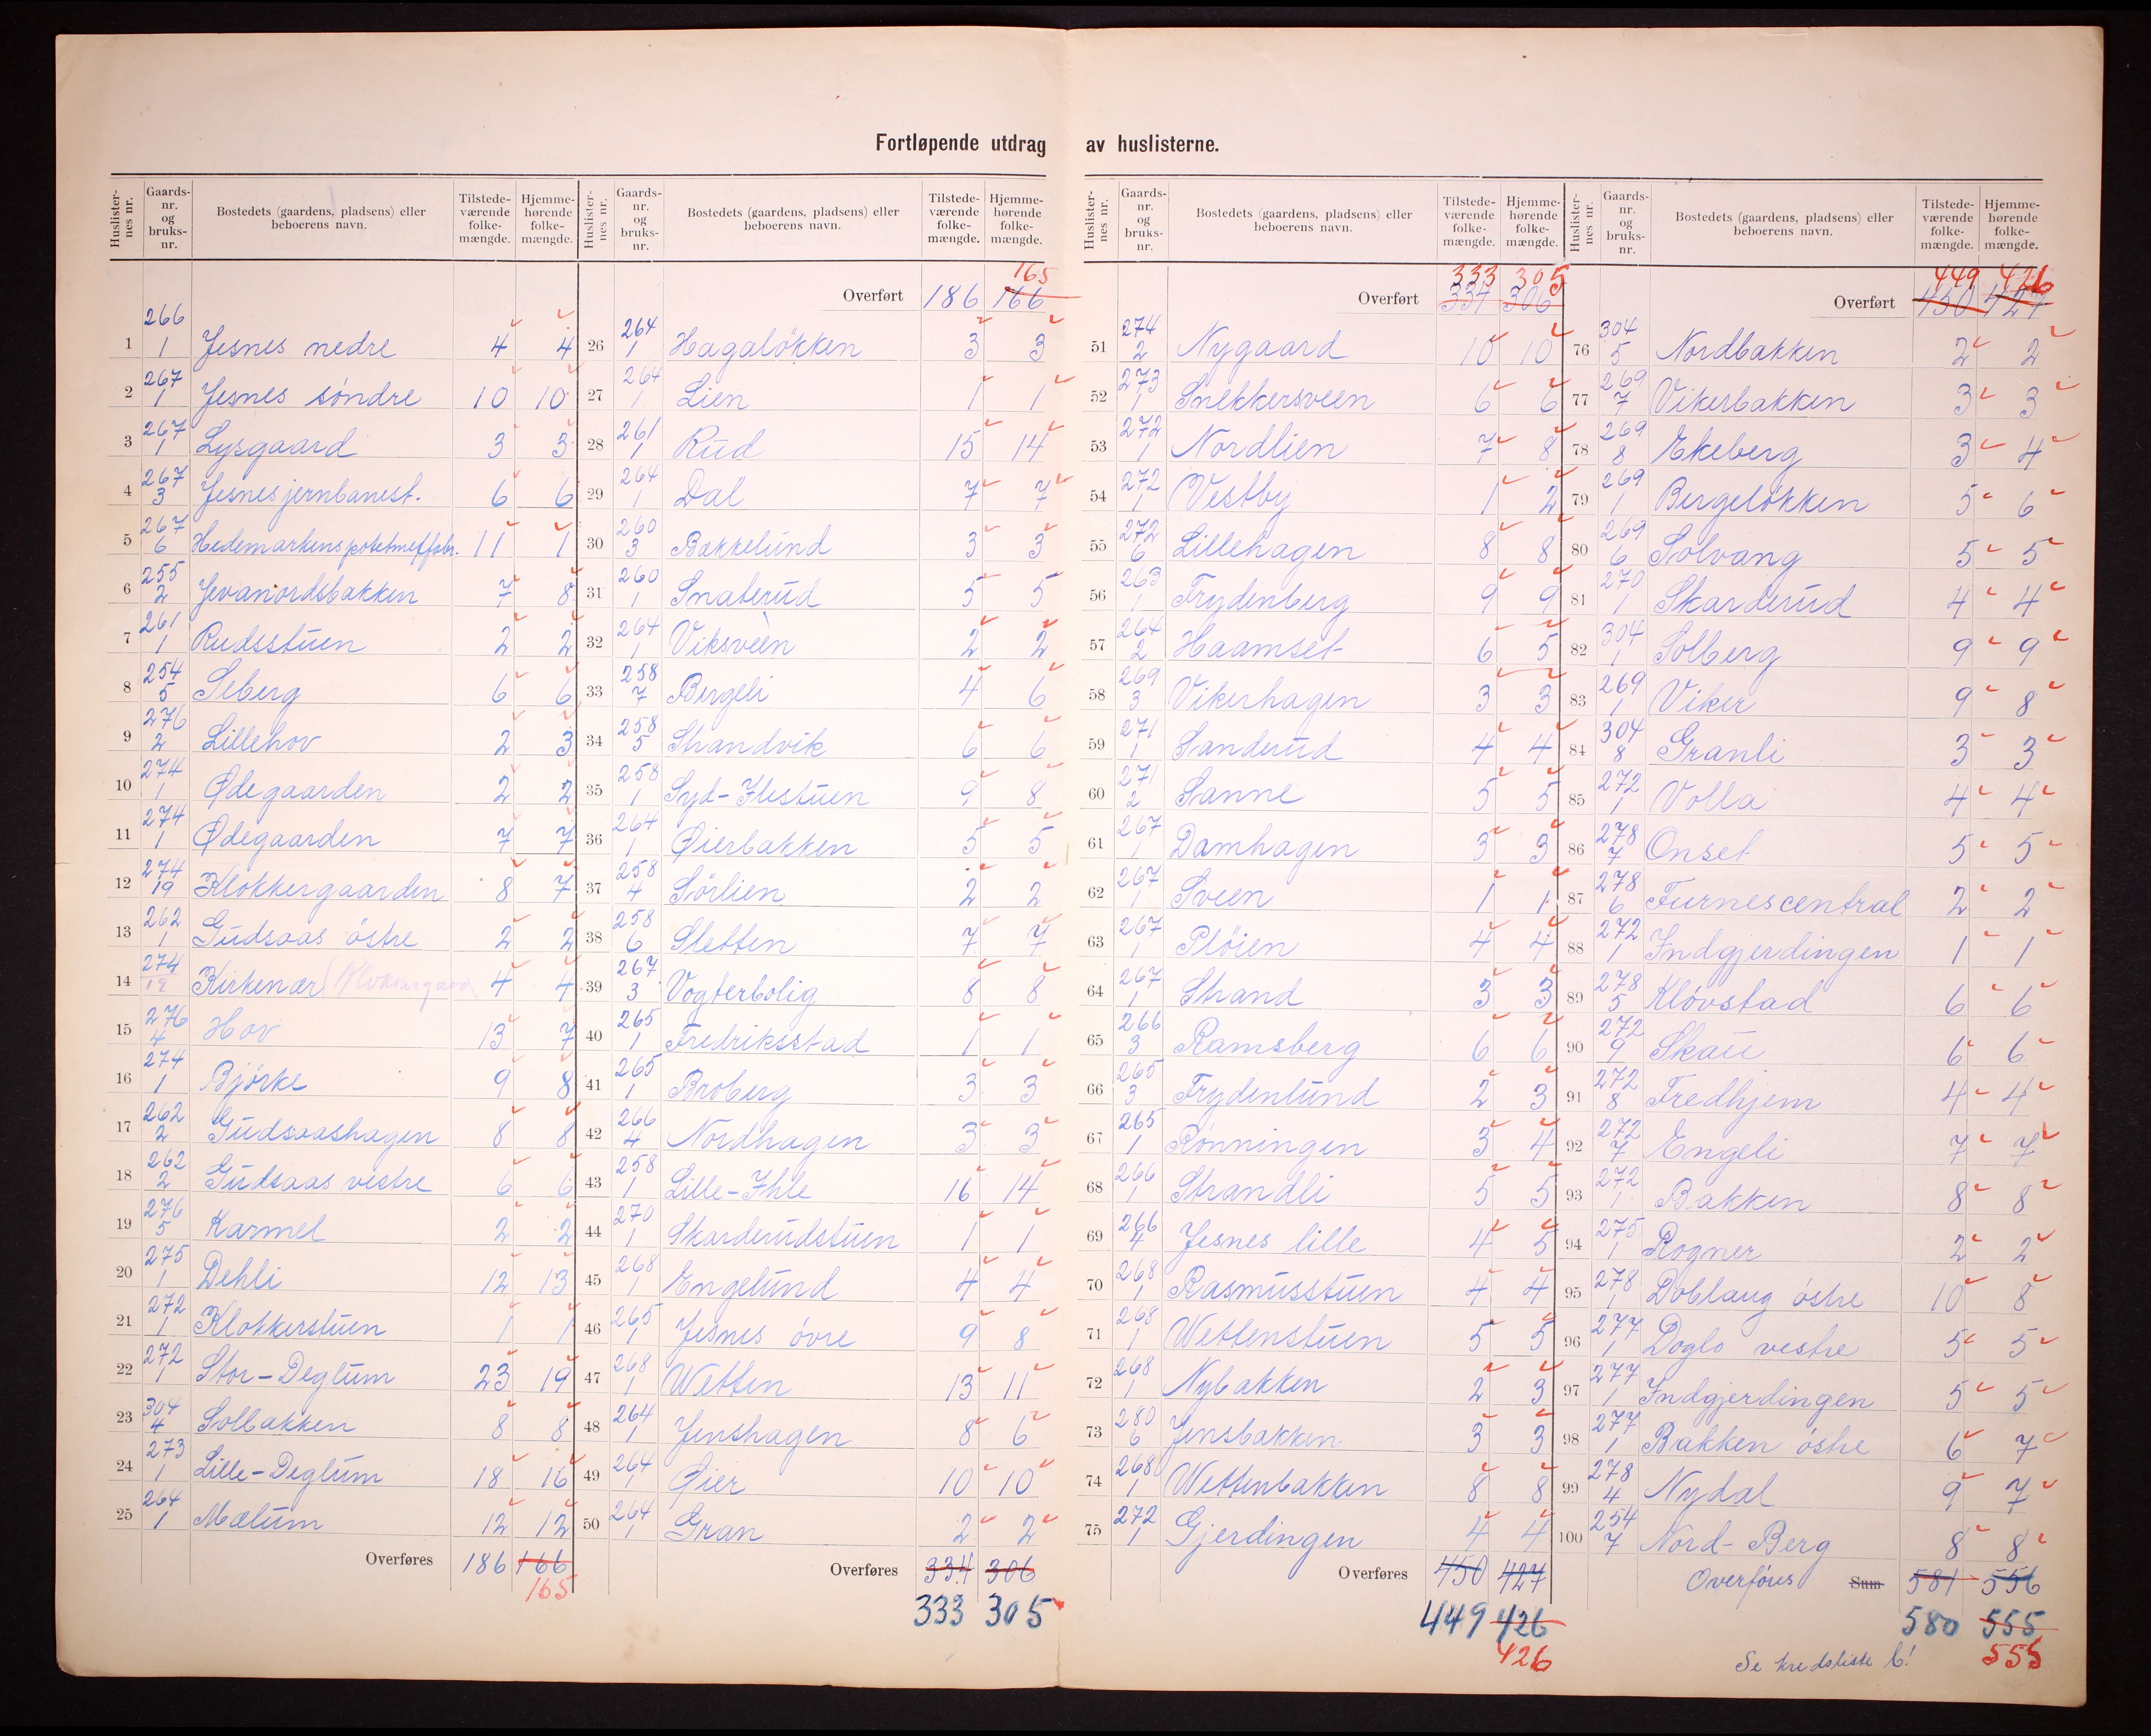 Fortløpende utdrag av huslisterne.
Huslister-nes nr. | Gaards-nr. og bruks-nr. | Bostedets (gaardens, pladsens) eller beboerens navn. | Tilstede-værende folke-mængde. | Hjemme-hørende folke-mængde.
1 266 1 Jesnes nedre 4 4
2 267 1 Jesnes söndre 10 10
3 267 1 Lysgaard 3 3
4 267 3 Jesnes jernbanest. 6 6
5 267 6 Hedemarkens potetmelfabr. 11 1
6 255 2 Jevanordsbakken 7 8
7 261 1 Rudsstuen 2 2
8 254 5 Seberg 6 6
9 276 2 Lillehov 2 3
10 274 1 Ødegaarden 2 2
11 274 1 Ødegaarden 7 7
12 274 19 Klokkergaarden 8 7
13 262 1 Gudsaas östre 2 2
14 274 Kirkenær (Klokkergaard 4 4
15 276 4 Hov 13 7
16 274 1 Björke 9 8
17 262 2 Gudsaashagen 8 8
18 262 2 Gudsaas vestre 6 6
19 276 5 Karmel 2 2
20 275 1 Dehli 12 13
21 272 1 Klokkerstuen 1 1
22 272 1 Stor-Deglum 23 19
23 304 4 Solbakken 8 8
24 273 1 Lille-Deglum 18 16
25 264 1 Mælum 12 12
Overføres 186 166
165
Huslister-nes nr. | Gaards-nr. og bruks-nr. | Bostedets (gaardens, pladsens) eller beboerens navn. | Tilstede-værende folke-mængde. | Hjemme-hørende folke-mængde.
165
Overført 186 166
26 264 1 Hagalökken 3 3
27 264 1 Lien 1 1
28 261 1 Rud 15 14
29 264 1 Dal 7 7
30 260 3 Bakkelund 3 3
31 260 1 Snaterud 5 5
32 264 1 Viksveen 2 2
33 258 7 Bergeli 4 6
34 258 5 Strandvik 6 6
35 258 1 Syd-Ihlestuen 9 8
36 264 1 Øierbakken 5 5
37 258 4 Sörlien 2 2
38 258 6 Sletten 7 7
39 267 3 Vogterbolig 8 8
40 265 1 Fredriksstad 1 1
41 265 1 Broberg 3 3
42 266 4 Nordhagen 3 3
43 258 1 Lille-Ihle 16 14
44 270 1 Skarderudstuen 1 1
45 268 1 Engelund 4 4
46 265 1 Jesnes övre 9 8
47 268 1 Wetten 13 11
48 264 1 Jenshagen 8 6
49 264 1 Øier 10 10
50 264 1 Gran 2 2
Overføres 334 306
333 305
Huslister-nes nr. | Gaards-nr. og bruks-nr. | Bostedets (gaardens, pladsens) eller beboerens navn. | Tilstede-værende folke-mængde. | Hjemme-hørende folke-mængde.
333 305
Overført 334 306
51 274 2 Nygaard 10 10
52 273 1 Snekkersveen 6 6
53 272 1 Nordlien 7 8
54 272 1 Vestby 1 2
55 272 6 Lillehagen 8 8
56 263 1 Frydenberg 9 9
57 264 2 Haamset 6 5
58 269 3 Vikerhagen 3 3
59 271 1 Sanderud 4 4
60 271 2 Sanne 5 5
61 267 1 Damhagen 3 3
62 267 1 Sveen 1 1
63 267 1 Plöien 4 4
64 267 1 Strand 3 3
65 266 3 Ramsberg 6 6
66 265 3 Frydenlund 2 3
67 265 1 Rönningen 3 4
68 266 1 Strandli 5 5
69 266 4 Jesnes lille 4 5
70 268 1 Rasmusstuen 4 4
71 268 1 Wettenstuen 5 5
72 268 1 Nybakken 2 3
73 280 6 Jensbakken 3 3
74 268 1 Wettenbakken 8 8
75 272 1 Gjerdingen 4 4
Overføres 450 427
449 426
426
Huslister-nes nr. | Gaards-nr. og bruks-nr. | Bostedets (gaardens, pladsens) eller beboerens navn. | Tilstede-værende folke-mængde. | Hjemme-hørende folke-mængde.
449 426
Overført 450 427
76 304 5 Nordbakken 2 2
77 269 7 Vikerbakken 3 3
78 269 8 Ekeberg 3 4
79 269 1 Bergelökken 5 6
80 269 6 Solvang 5 5
81 270 1 Skarderud 4 4
82 304 1 Solberg 9 9
83 269 1 Viker 9 8
84 304 8 Granli 3 3
85 272 1 Volla 4 4
86 278 7 Onset 5 5
87 278 6 Furnes central 2 2
88 272 1 Indgjerdingen 1 1
89 278 5 Klövstad 6 6
90 272 9 Skau 6 6
91 272 8 Fredhjem 4 4
92 272 7 Engeli 7 7
93 272 1 Bakken 8 8
94 275 1 Rogner 2 2
95 278 1 Doblaug östre 10 8
96 277 1 Doglo vestre 5 5
97 277 1 Indgjerdingen 5 5
98 277 1 Bakken östre 6 7
99 278 4 Nydal 9 7
100 254 7 Nord-Berg 8 8
Overföres Sum 581 556
580 555
555
Se kredsliste 6!